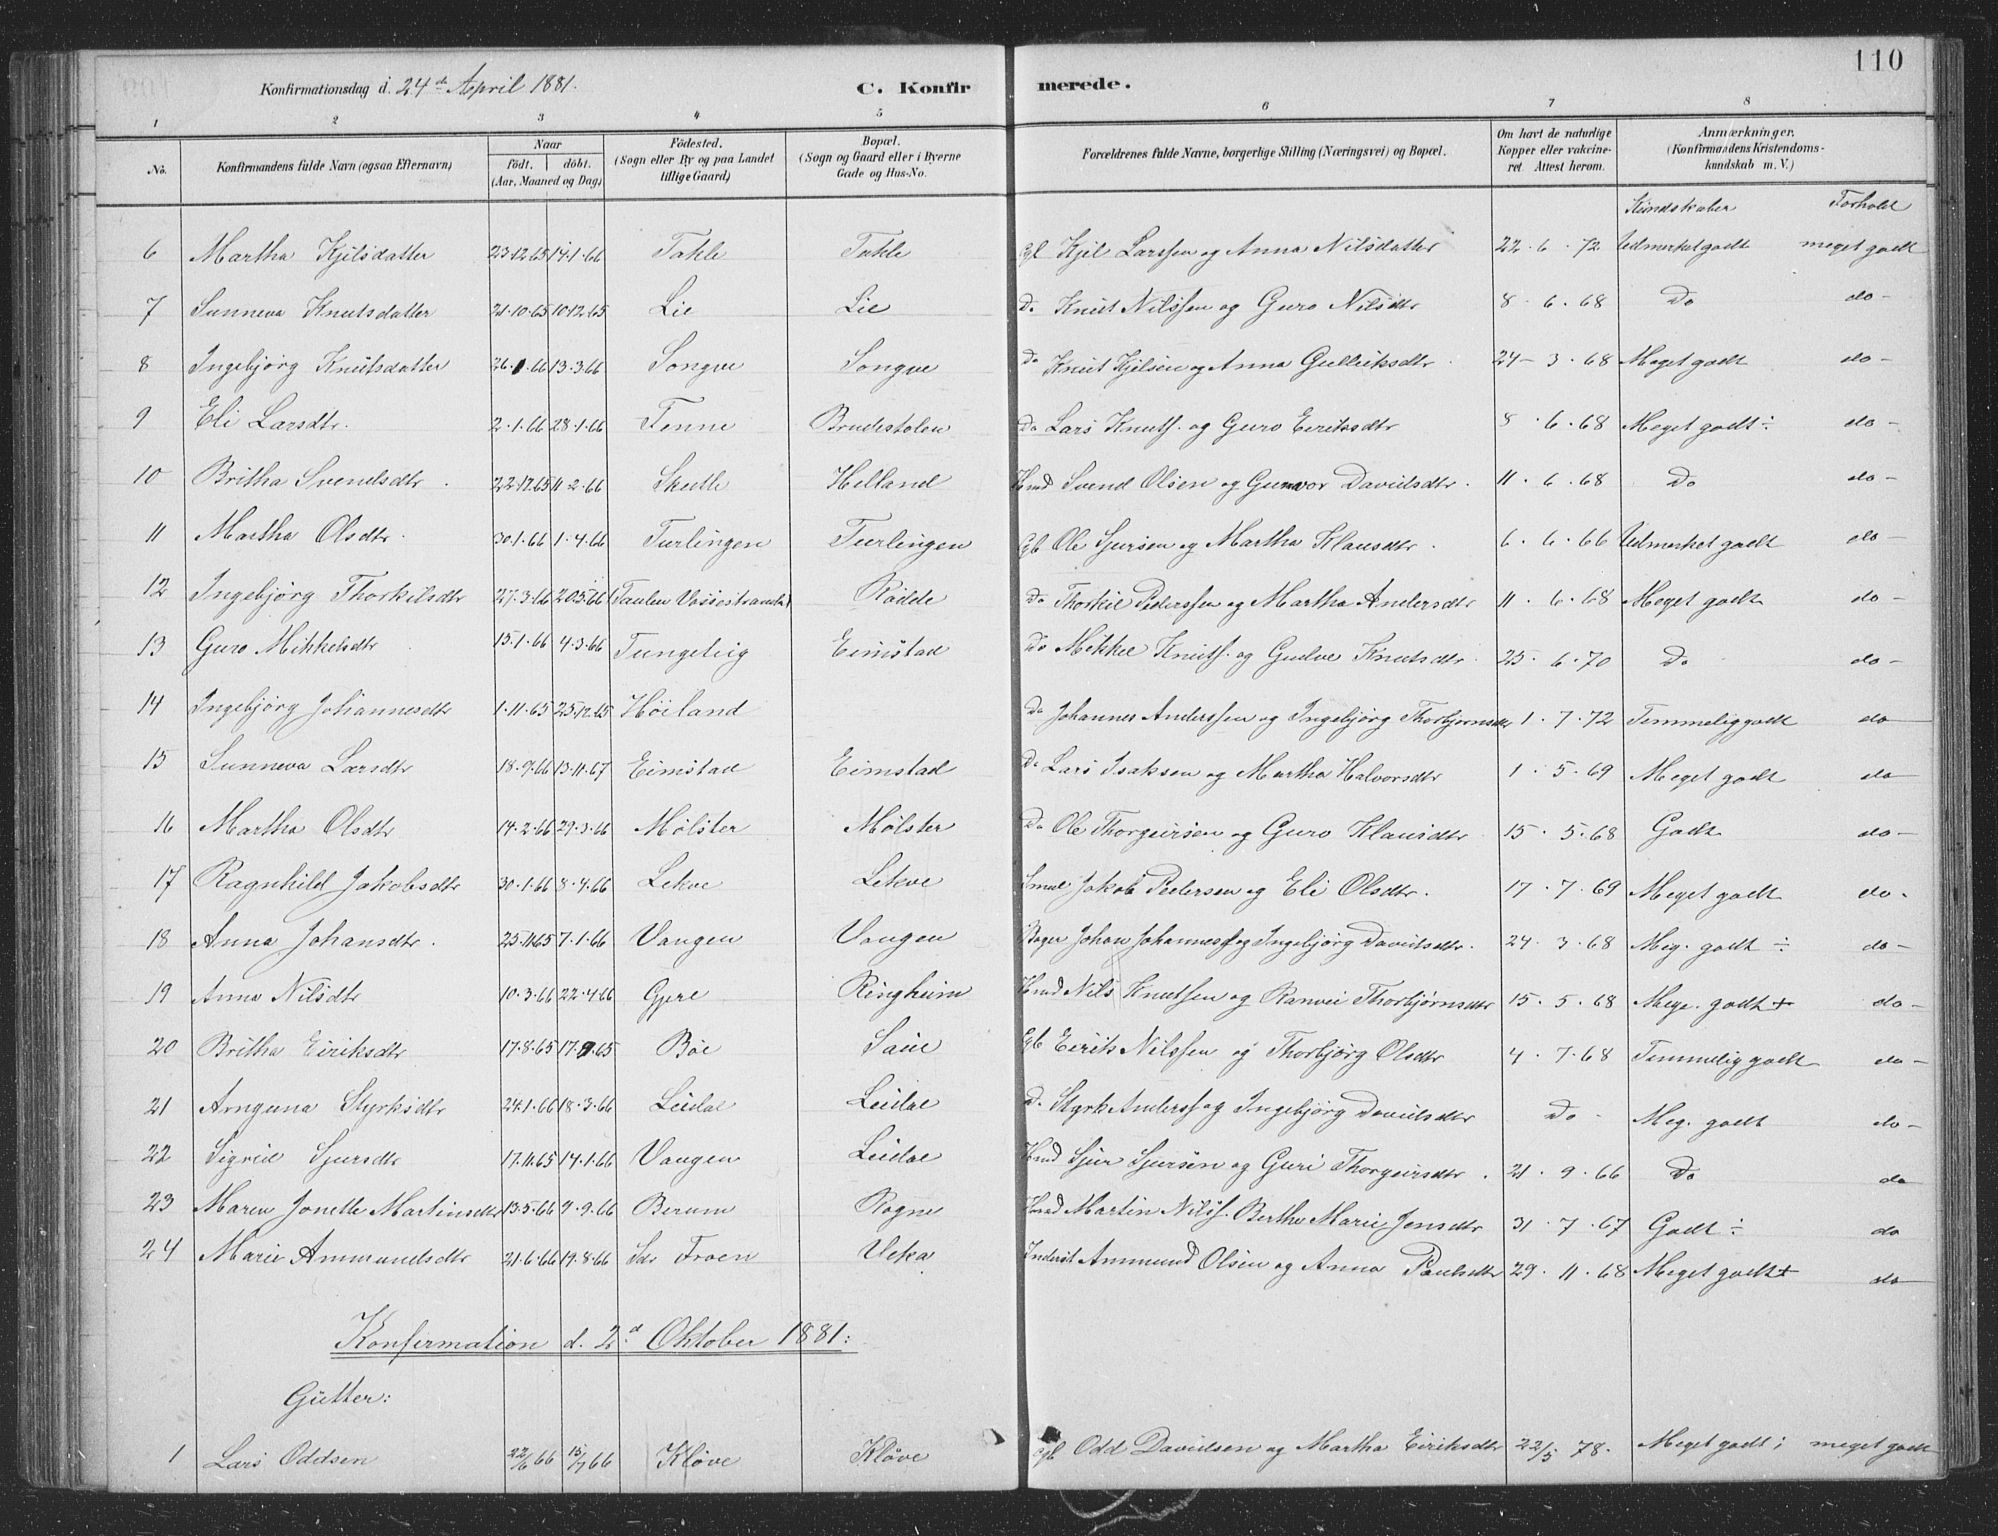 110
Konfirmationsdag d. 24de April 1881. C. Konfirmerede.
1 2 3 4 5 6 7 8
No. Konfirmandens fulde Navn (ogsaa Efternavn) Naar født. døbt. (Aar, Maaned og Dag) Fødested. (Sogn eller By og paa Landet tillige Gaard) Bopæl. (Sogn og Gaard eller i Byerne Gade og Hus-No. Forældrenes fulde Navne, borgerlige Stilling (Næringsvei) og Bopæl. Om havt de naturlige Kopper eller vakcineret. Attest herom. Anmærkninger. (Konfirmandens Kristendomskundskab m. V.)
Kundskaber Forhold
6 Martha Kjilsdatter 23.12.65 14.1.66 Takle Takle gb Kjil Larssen og Anna Nilsdatter 22.6.72 Udmerket godt meget godt
7 Sunneva Knutsdatter 21.10.65 10.12.65 Lie Lie Do Knut Nilssen og Guro Nilsdtr 8.6.68 Do do
8 Ingebjørg Knutsdatter 26.1.66 13.3.66 Songve Songve do Knut Kjilsen og Anna Gulleiksdtr. 24-3.68 Meget godt do
9 Eli Larsdtr. 2.1.66 28.1.66 Tenne Brudestolen Do Lars Knuts. og Guro Eiriksdtr 8.6.68 Meget godt ÷ do
10 Britha Svendsdtr. 22.12.65 11.2.66 Skutle Helland Hmd Svend Olsen og Gunvor Davidsdtr. 11.6.68 Do do
11 Martha Olsdtr. 30.1.66 1.4.66 Turlingen Turlingen Gb Ole Sjursen og Martha Klausdtr. 6.6.66 Udmerket godt do
12 Ingebjørg Thorkilsdtr 27.3.66 20.5.66 (Taulen Vossestranden) Rødde do Thorkil Pederssen og Martha Andersdtr 11.6.68 Meget godt do
13 Guro Mikkelsdtr 15.1.66 4.3.66 Tungetvig Eimstad do Mikkel Knuts. og Gudve Knutsdtr. 25.6.70 Do do
14 Ingebjørg Johannesdtr 1.11.65 25.12.65 Høiland do Johannes Anderssen og Ingebjørg Thorbjørnsdtr 1.7.72 Temmelig godt do
15 Sunneva Larsdtr 18.9.66 13.11.67 Eimstad Eimstad do Lars Isaksen og Martha Halvorsdtr 1.5.69 Meget godt do
16 Martha Olsdtr 14.2.66 29.3.66 Mølster Mølster Do Ole Thorgeirsen og Guro Klausdtr 15.5.68 Godt do
17 Ragnhild Jakobsdtr 30.1.66 8.4.66 Lekve Lekve Smed Jakob Pedersen og Eli Olsdtr. 17.7.69 Meget godt do.
18 Anna Johansdtr. 25.11.65 7.1.66 Vangen Vangen Bager Johan Johanness. og Ingebjørg Davidsdtr. 24.3.68 Meg. godt ÷ do
19 Anna Nilsdtr 10.3.66 22.4.66 Gjere Ringheim Hmd Nils Knutsen og Ranvei Thorbjørnsdtr 15.5.68 Mege. godt + do
20 Britha Eiriksdtr 17.8.65 17.9.65 Bøe Saue Gb Eirik Nilssen og Thorbjørg Olsdtr 4.7.68 Temmelig godt do
21 Arnguna Styrksdtr 24.1.66 18.3.66 Leidal Leidal d. Styrk Anderss. og Ingebjørg Davidsdtr Do Meg. godt do
22 Sigrid Sjursdtr 17.11.65 14.1.66 Vangen Leidal Hmd Sjur Sjursen og Guri Thorgeirsdtr. 21.9.66 Do do
23 Maren Jonette Martinsdtr 13.5.66 9.9.66 Berum Rogne Hmd Martin Nils. Berthe Marie Jensdtr 31.7.67 Godt ÷ do
24 Marie Ammundsdtr 21.6.66 19.8.66 Sdr Froen Ueka Inderst Ammund Olsen og Anna Paulsdtr 29.11.68 Meget godt + do
Konfirmation d. 2d Oktober 1881:
Gutter:
1 Lars Oddsen 22/6 66 15/7 66 Kløve Kløve gb Odd Davidsen og Martha Eiriksdtr 22/5 78. Meget godt; meget godt